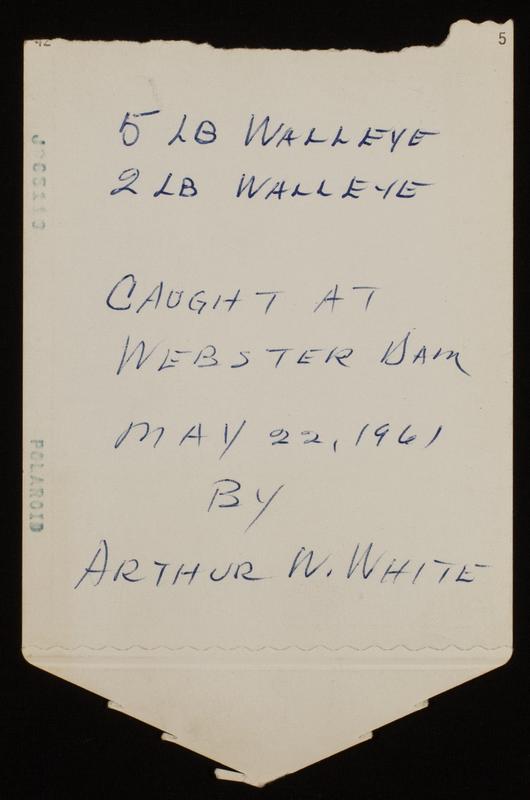 5
5 LB WALLEYE
2 LB WALLEYE
CAUGHT AT
WEBSTER DAM
MAY 22, 1961
BY
ARTHUR W. WHITE
POLAROID